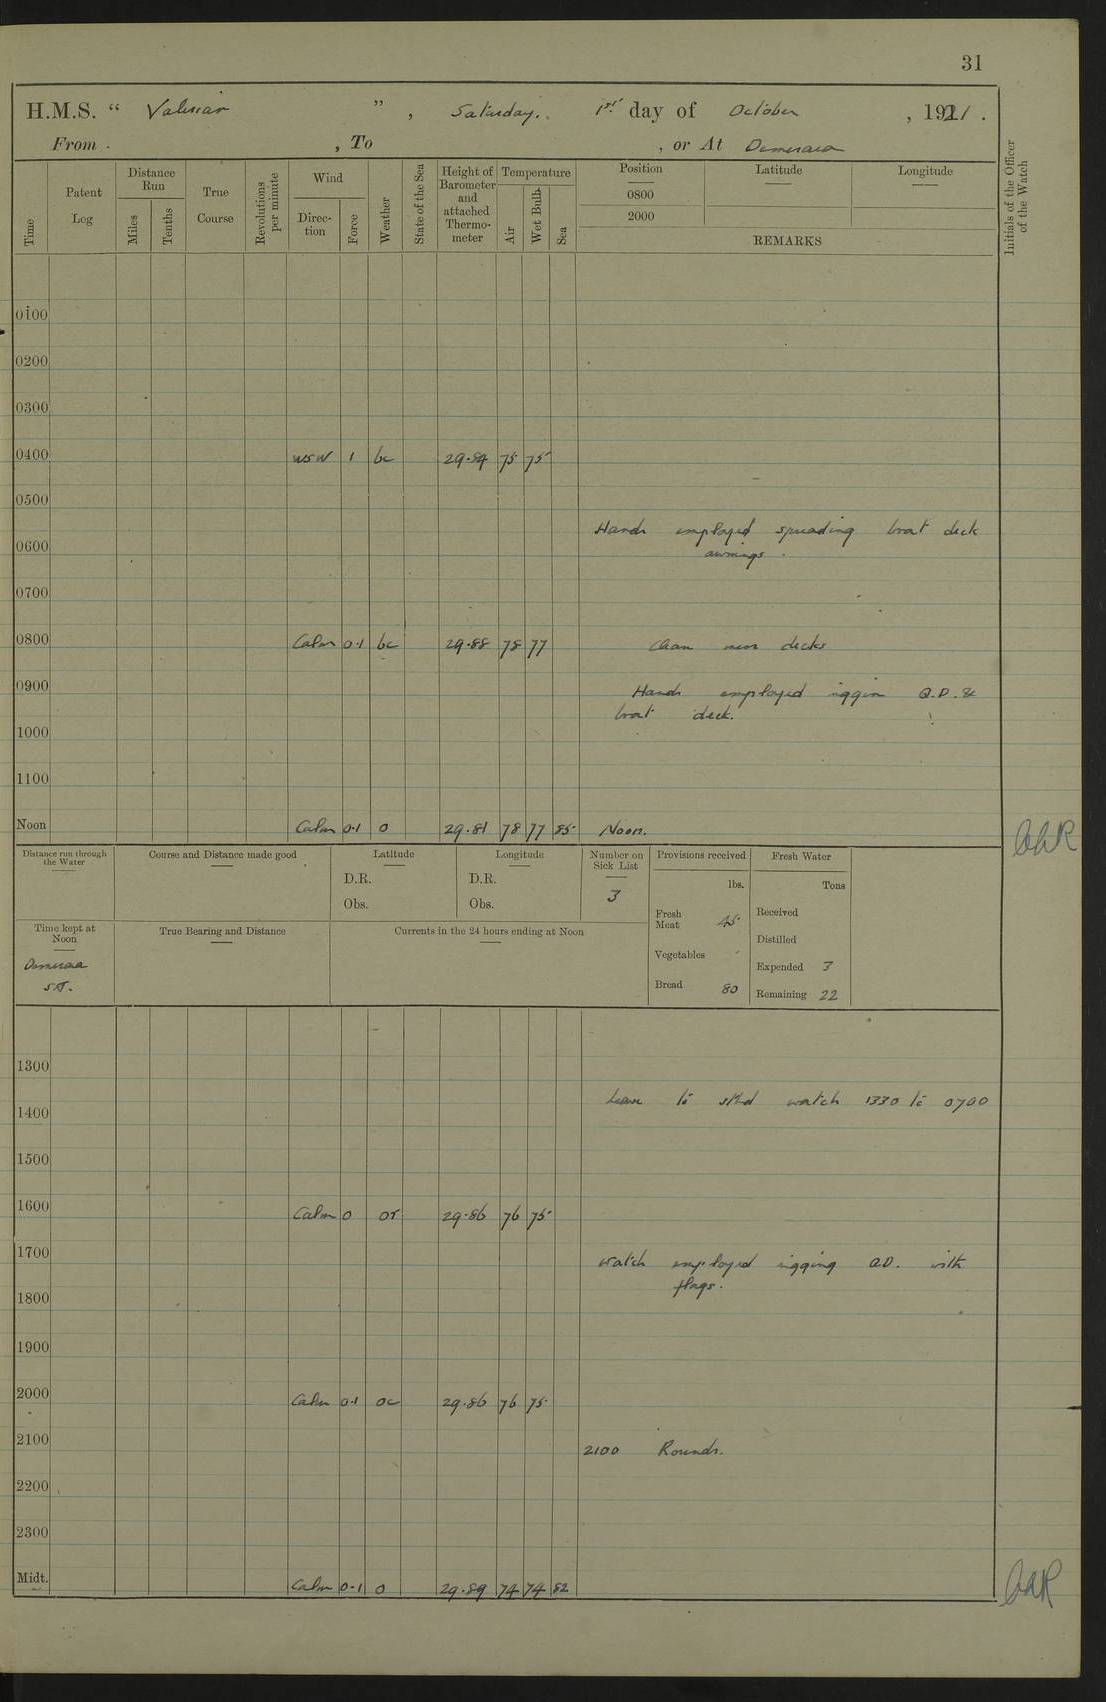 31
H.M.S. “ Valerian ” , Saturday. 1st day of October , 1921 .
From , To , or At Demerara
Time
Patent Log
Distance Run
Miles
Tenths
True Course
Revolutions per minute
Wind
Direc-tion
Force
Weather
State of the Sea
Height of Barometer and attached Thermo-meter
Temperature
Air
Wet Bulb
Sea
Position
0800
2000
Latitude
Longitude
REMARKS
Initials of the Officer of the Watch
0100
0200
0300
0400 WSW 1 bc 29.84 75 75
0500
Hands employed spreading boat deck
0600
awnings.
0700
0800 Calm 0.1 bc 29.88 78 77 Clean mess decks
0900 Hands employed riggin Q.D. &
boat deck.
1000
1100
Noon Calm 0.1 o 29.81 78 77 85 Noon.
Distance run through the Water
Course and Distance made good
Latitude
D.R.
Obs.
Longitude
D.R.
Obs.
Number on Sick List
3
Provisions received
lbs.
Fresh Meat 45
Vegetables
Bread 80
Fresh Water
Tons
Received
Distilled
Expended 3
Remaining 22
Time kept at Noon
Demerara
S.T.
True Bearing and Distance
Currents in the 24 hours ending at Noon
1300
Leave to stbd watch 1330 to 0700
1400
1500
1600 Calm 0 or 29.86 76 75
1700 Watch employed rigging QD. with
flags.
1800
1900
2000 Calm 0.1 oc 29.86 76 75
2100 2100 Rounds.
2200
2300
Midt. Calm 0.1 o 29.89 74 74 82